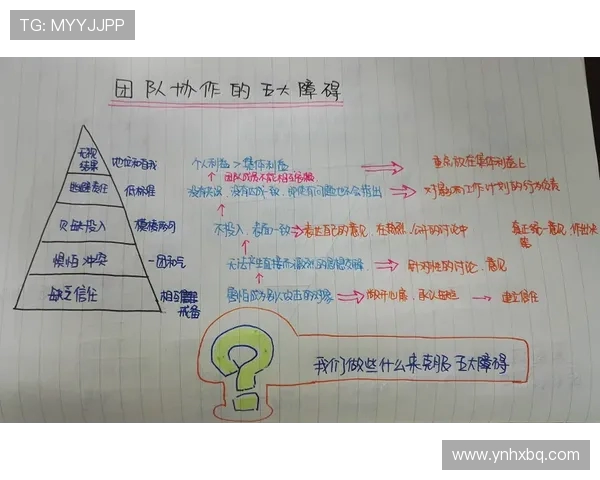 TG: MYYJJPP
团队协作的五大障碍
无视结果 地位和自我 个人利益 > 集体利益 重点放在集体利益上
团队成员不能相互
逃避责任 低标准 对影响工作计划的行为负责
欠缺投入 模棱两可 不投入，表面一致 表达自己的意见，在热烈、公开的讨论中 真正统一意见，作出决策
惧怕冲突 一团和气 无法产生直接而激烈的思想交锋 针对性的讨论、意见
缺乏信任 相互 戒备 害怕成为别人攻击的对象 敞开心扉，承认缺点 建立信任
我们做些什么来克服五大障碍
www.ynhxbq.com